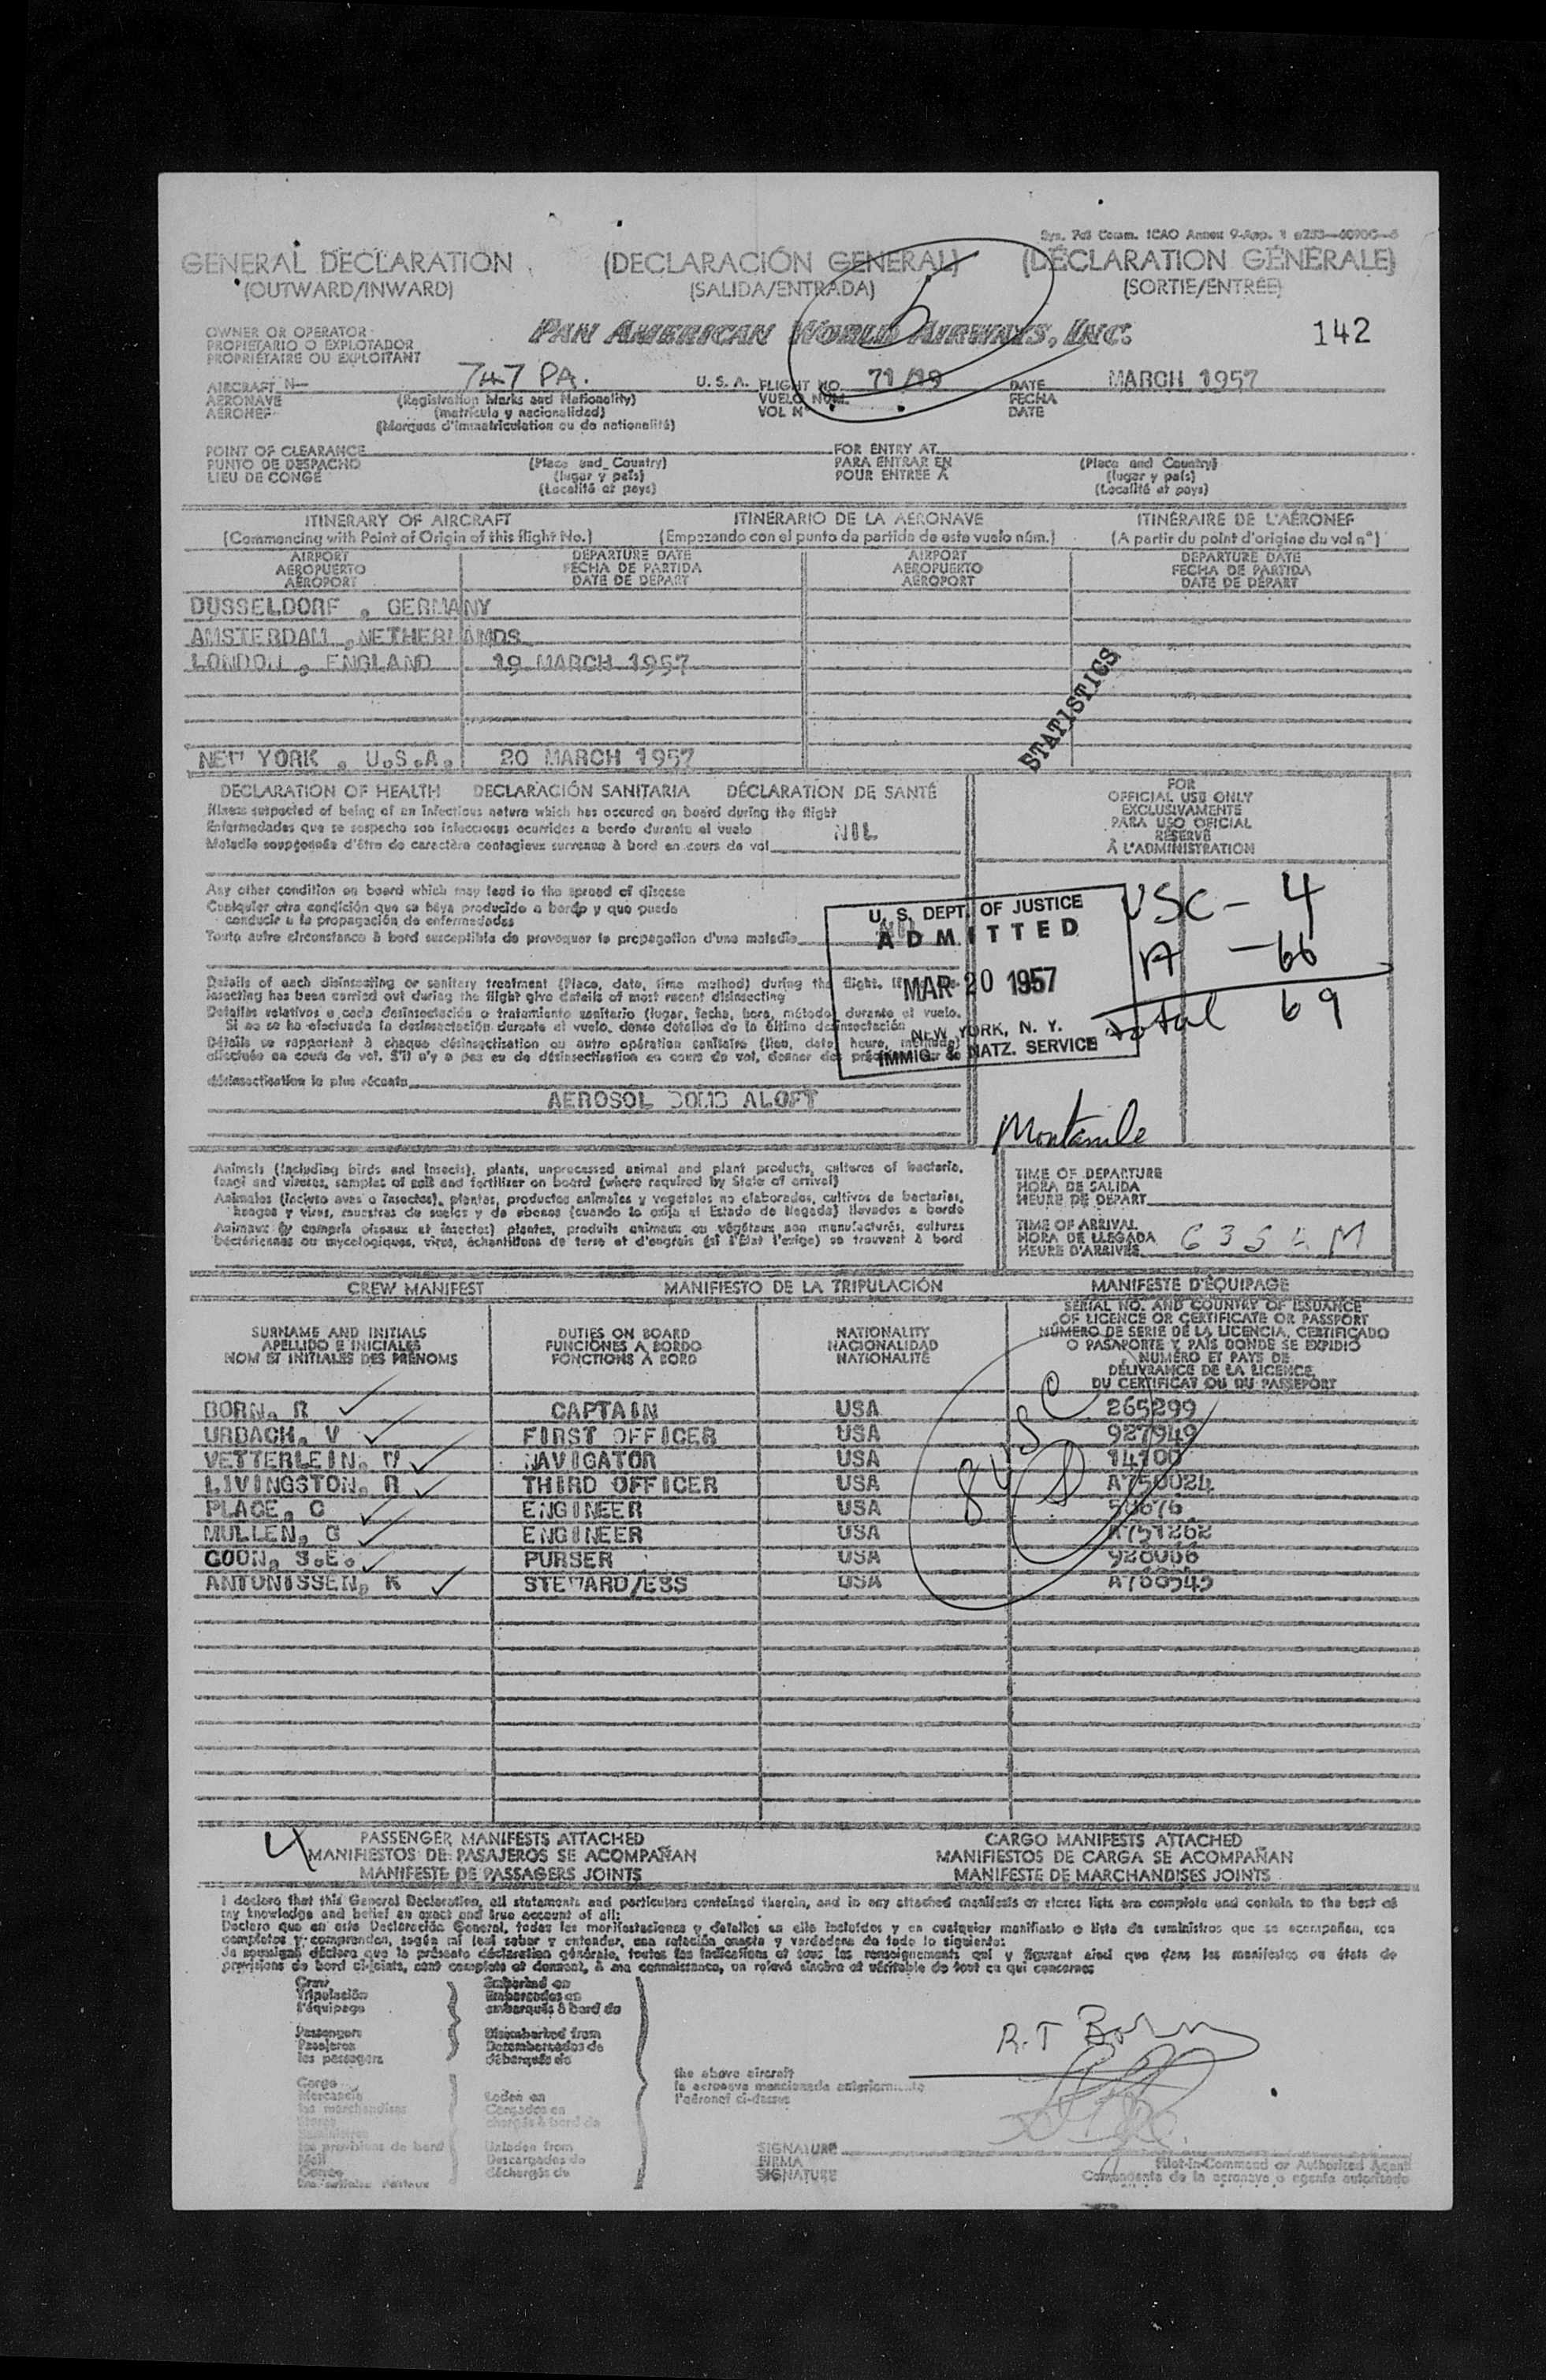 GENERAL DECLARATION (DECLARACIÓN GENERAL) (DÉCLARATION GÉNÉRALE)
(OUTWARD/INWARD) (SALIDA/ENTRADA) (SORTIE/ENTRÉE)
OWNER OR OPERATOR
PROPIETARIO O EXPLOTADOR
PROPRIÉTAIRE OU EXPLOITANT
PAN AMERICAN WORLD AIRWAYS, INC.
142
AIRCRAFT N— 747 PA. U.S.A. FLIGHT NO. 71/19 DATE MARCH 1957
AERONAVE (Registration Marks and Nationality) VUELO NUM. FECHA
AÉRONEF (matrícula y nacionalidad) VOL N° DATE
(Marques d'immatriculation ou de nationalité)
POINT OF CLEARANCE FOR ENTRY AT
PUNTO DE DESPACHO (Place and Country) PARA ENTRAR EN (Place and Country)
LIEU DE CONGÉ (lugar y país) POUR ENTRÉE À (lugar y país)
(Localité et pays) (Localité et pays)
ITINERARY OF AIRCRAFT ITINERARIO DE LA AERONAVE ITINÉRAIRE DE L'AÉRONEF
(Commencing with Point of Origin of this flight No.) (Empezando con el punto de partida de este vuelo núm.) (A partir du point d'origine du vol n°)
AIRPORT DEPARTURE DATE AIRPORT DEPARTURE DATE
AEROPUERTO FECHA DE PARTIDA AEROPUERTO FECHA DE PARTIDA
AÉROPORT DATE DE DÉPART AÉROPORT DATE DE DÉPART
DUSSELDORF , GERMANY
AMSTERDAM , NETHERLANDS
LONDON , ENGLAND 19 MARCH 1957
STATISTICS
NEW YORK , U.S.A. 20 MARCH 1957
DECLARATION OF HEALTH DECLARACIÓN SANITARIA DÉCLARATION DE SANTÉ
Illness suspected of being of an infectious nature which has occured on board during the flight
Enfermedades que se sospecha son infecciosas ocurridas a bordo durante el vuelo
Maladie soupçonnée d'être de caractère contagieux survenue à bord en cours de vol
NIL
FOR
OFFICIAL USE ONLY
EXCLUSIVAMENTE
PARA USO OFICIAL
RÉSERVÉ
À L'ADMINISTRATION
Any other condition on board which may lead to the spread of disease
Cualquier otra condición que se haya producido a bordo y que pueda
conducir a la propagación de enfermedades
Toute autre circonstance à bord susceptible de provoquer la propagation d'une maladie
U. S. DEPT. OF JUSTICE
ADMITTED
MAR 20 1957
NEW YORK, N. Y.
IMMIG. & NATZ. SERVICE
USC - 4
A - 66
Total 69
Details of each disinsecting or sanitary treatment (Place, date, time method) during the flight.
insecting has been carried out during the flight give details of most recent disinsecting
Detalles relativos a cada desinsectación o tratamiento sanitario (lugar, fecha, hora, método) durante el vuelo.
Si no se ha efectuado la desinsectación durante el vuelo, dense detalles de la última desinsectación
Détails se rapportant à chaque désinsectisation ou autre opération sanitaire (lieu, date, heure, méthode)
effectuée en cours de vol. S'il n'y a pas eu de désinsectisation en cours de vol, donner des
désinsectisation la plus récente
AEROSOL BOMB ALOFT
Animals (including birds and insects), plants, unprocessed animal and plant products, cultures of bacteria,
fungi and viruses, samples of soil and fertilizer on board (where required by State of arrival)
Animales (incluso aves o insectos), plantas, productos animales y vegetales no elaborados, cultivos de bacterias,
hongos y virus, muestras de suelos y de abonos (cuando lo exija el Estado de llegada) llevados a bordo
Animaux (y compris oiseaux et insectes) plantes, produits animaux ou végétaux non manufacturés, cultures
bactériennes ou mycologiques, virus, échantillons de terre et d'engrais (si l'État l'exige) se trouvant à bord
TIME OF DEPARTURE
HORA DE SALIDA
HEURE DE DÉPART
TIME OF ARRIVAL
HORA DE LLEGADA
HEURE D'ARRIVÉE 635 AM
CREW MANIFEST MANIFIESTO DE LA TRIPULACIÓN MANIFESTE D'ÉQUIPAGE
SURNAME AND INITIALS
APELLIDO E INICIALES
NOM ET INITIALES DES PRÉNOMS
DUTIES ON BOARD
FUNCIONES A BORDO
FONCTIONS À BORD
NATIONALITY
NACIONALIDAD
NATIONALITÉ
SERIAL NO. AND COUNTRY OF ISSUANCE
OF LICENCE OR CERTIFICATE OR PASSPORT
NÚMERO DE SERIE DE LA LICENCIA, CERTIFICADO
O PASAPORTE Y PAÍS DONDE SE EXPIDIÓ
NUMÉRO ET PAYS DE
DÉLIVRANCE DE LA LICENCE,
DU CERTIFICAT OU DU PASSEPORT
BORN, R CAPTAIN USA 265299
URBACH, V FIRST OFFICER USA 927949
VETTERLEIN, W NAVIGATOR USA 14100
LIVINGSTON, R THIRD OFFICER USA A750024
PLACE, C ENGINEER USA
MULLEN, G ENGINEER USA A751262
COON, S.E. PURSER USA
ANTONISSEN, K STEWARD/ESS USA
8 USC
4
PASSENGER MANIFESTS ATTACHED CARGO MANIFESTS ATTACHED
MANIFIESTOS DE PASAJEROS SE ACOMPAÑAN MANIFIESTOS DE CARGA SE ACOMPAÑAN
MANIFESTE DE PASSAGERS JOINTS MANIFESTE DE MARCHANDISES JOINTS
I declare that this General Declaration, all statements and particulars contained therein, and in any attached manifests or stores lists are complete and contain to the best of
my knowledge and belief an exact and true account of all:
Declaro que en esta Declaración General, todas las manifestaciones y detalles en ella incluídos y en cualquier manifiesto o lista de suministros que se acompañan, son
completos y comprenden, según mi leal saber y entender, una relación exacta y verdadera de todo lo siguiente:
Je soussigné déclare que la présente déclaration générale, toutes les indications et tous les renseignements qui y figurent ainsi que dans les manifestes ou états de
provisions de bord ci-joints, sont complets et donnent, à ma connaissance, un relevé sincère et véritable de tout ce qui concerne:
Crew
Tripulación
l'équipage
Embarked on
Embarcados en
embarqués à bord de
Passengers
Pasajeros
les passagers
Disembarked from
Desembarcados de
débarqués de
Cargo
Mercancía
les marchandises
Laden on
Cargados en
chargés à bord de
les provisions de bord
Mail
Correo
Unladen from
Descargados de
déchargés de
the above aircraft
la aeronave mencionada anteriormente
l'aéronef ci-dessus
R.T Born
SIGNATURE
FIRMA
SIGNATURE
Pilot-in-Command or Authorized Agent
Comandante de la aeronave o agente autorizado